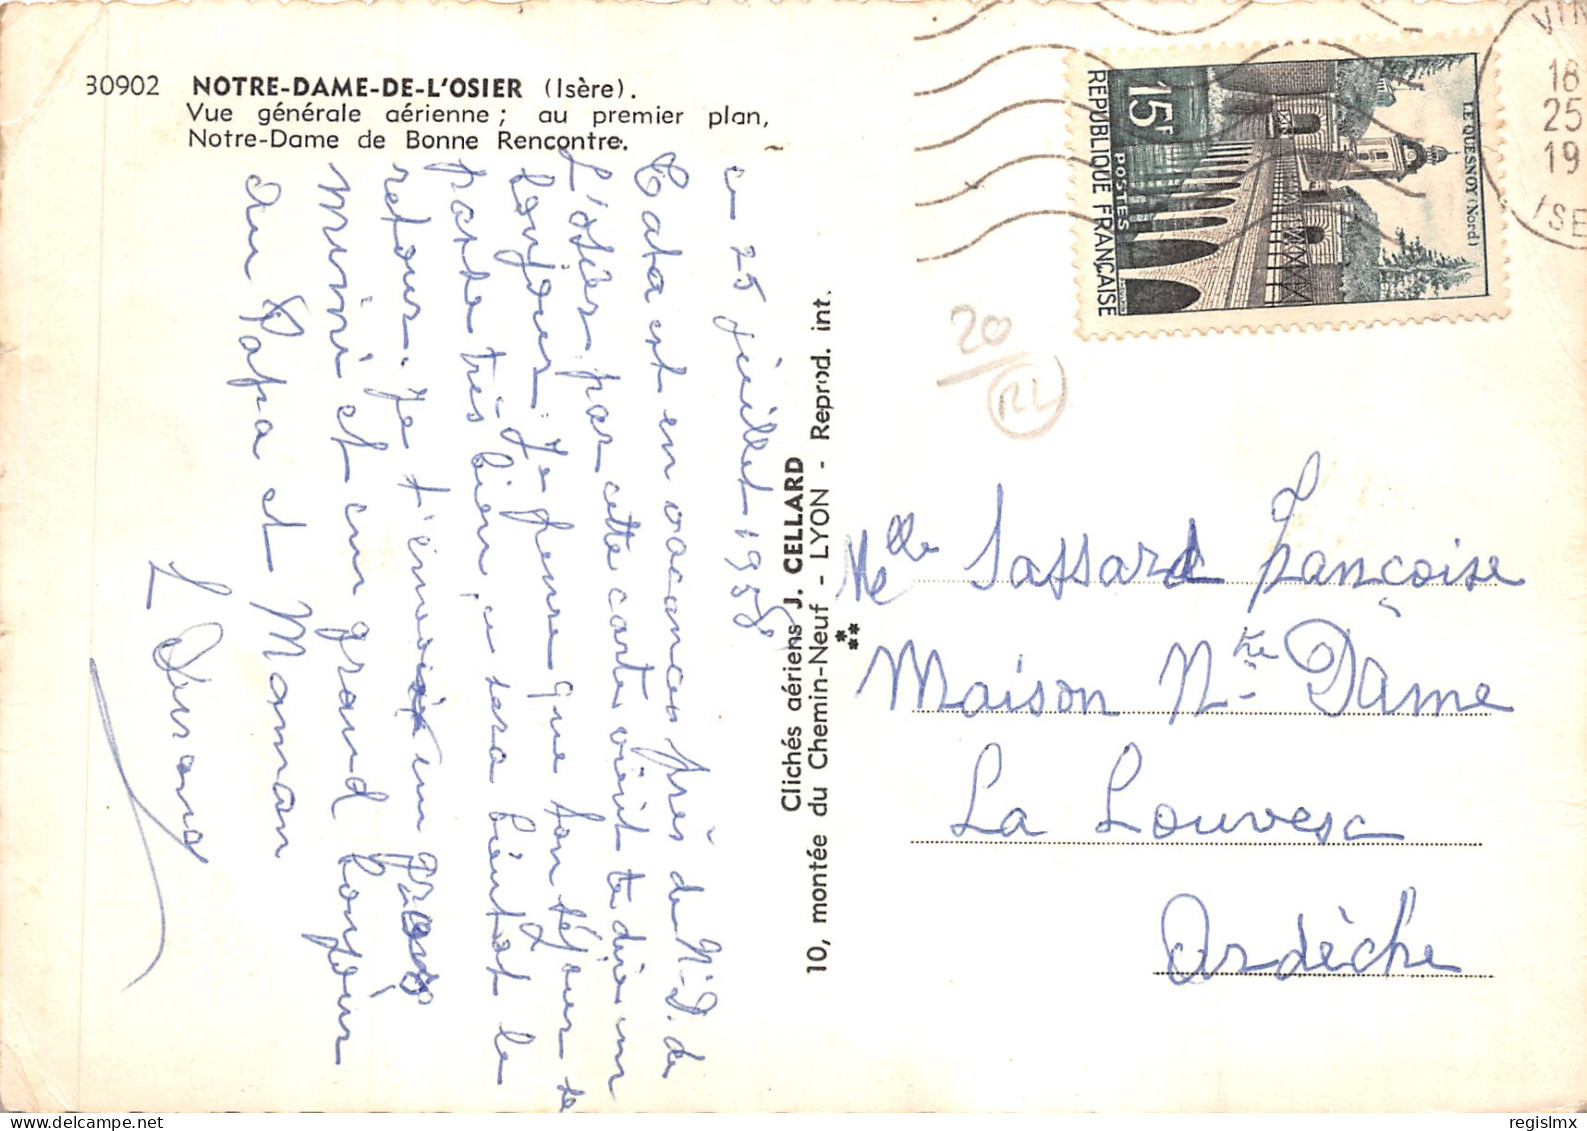 30902 NOTRE-DAME-DE-L'OSIER (Isère).
Vue générale aérienne ; au premier plan,
Notre-Dame de Bonne Rencontre.
ce 25 juillet 1958
Tata est en vacances près de N.D. de
L'osier par cette carte vient te dire un
bonjour. Je pense que ton séjour se
passe très bien, ce sera bientôt le
retour. Je t'envoie un gros
mimi et un grand bonjour
au Papa et Maman
L Durand
Clichés aériens J. CELLARD
10, montée du Chemin-Neuf - LYON - Reprod. int.
**
*
REPUBLIQUE FRANÇAISE
15F
POSTES
LE QUESNOY (Nord)
VIN
18
25
19
ISE
20
RL
Melle Sassard Françoise
Maison Ntre Dâme
La Louvesc
Ardèche
regislmx